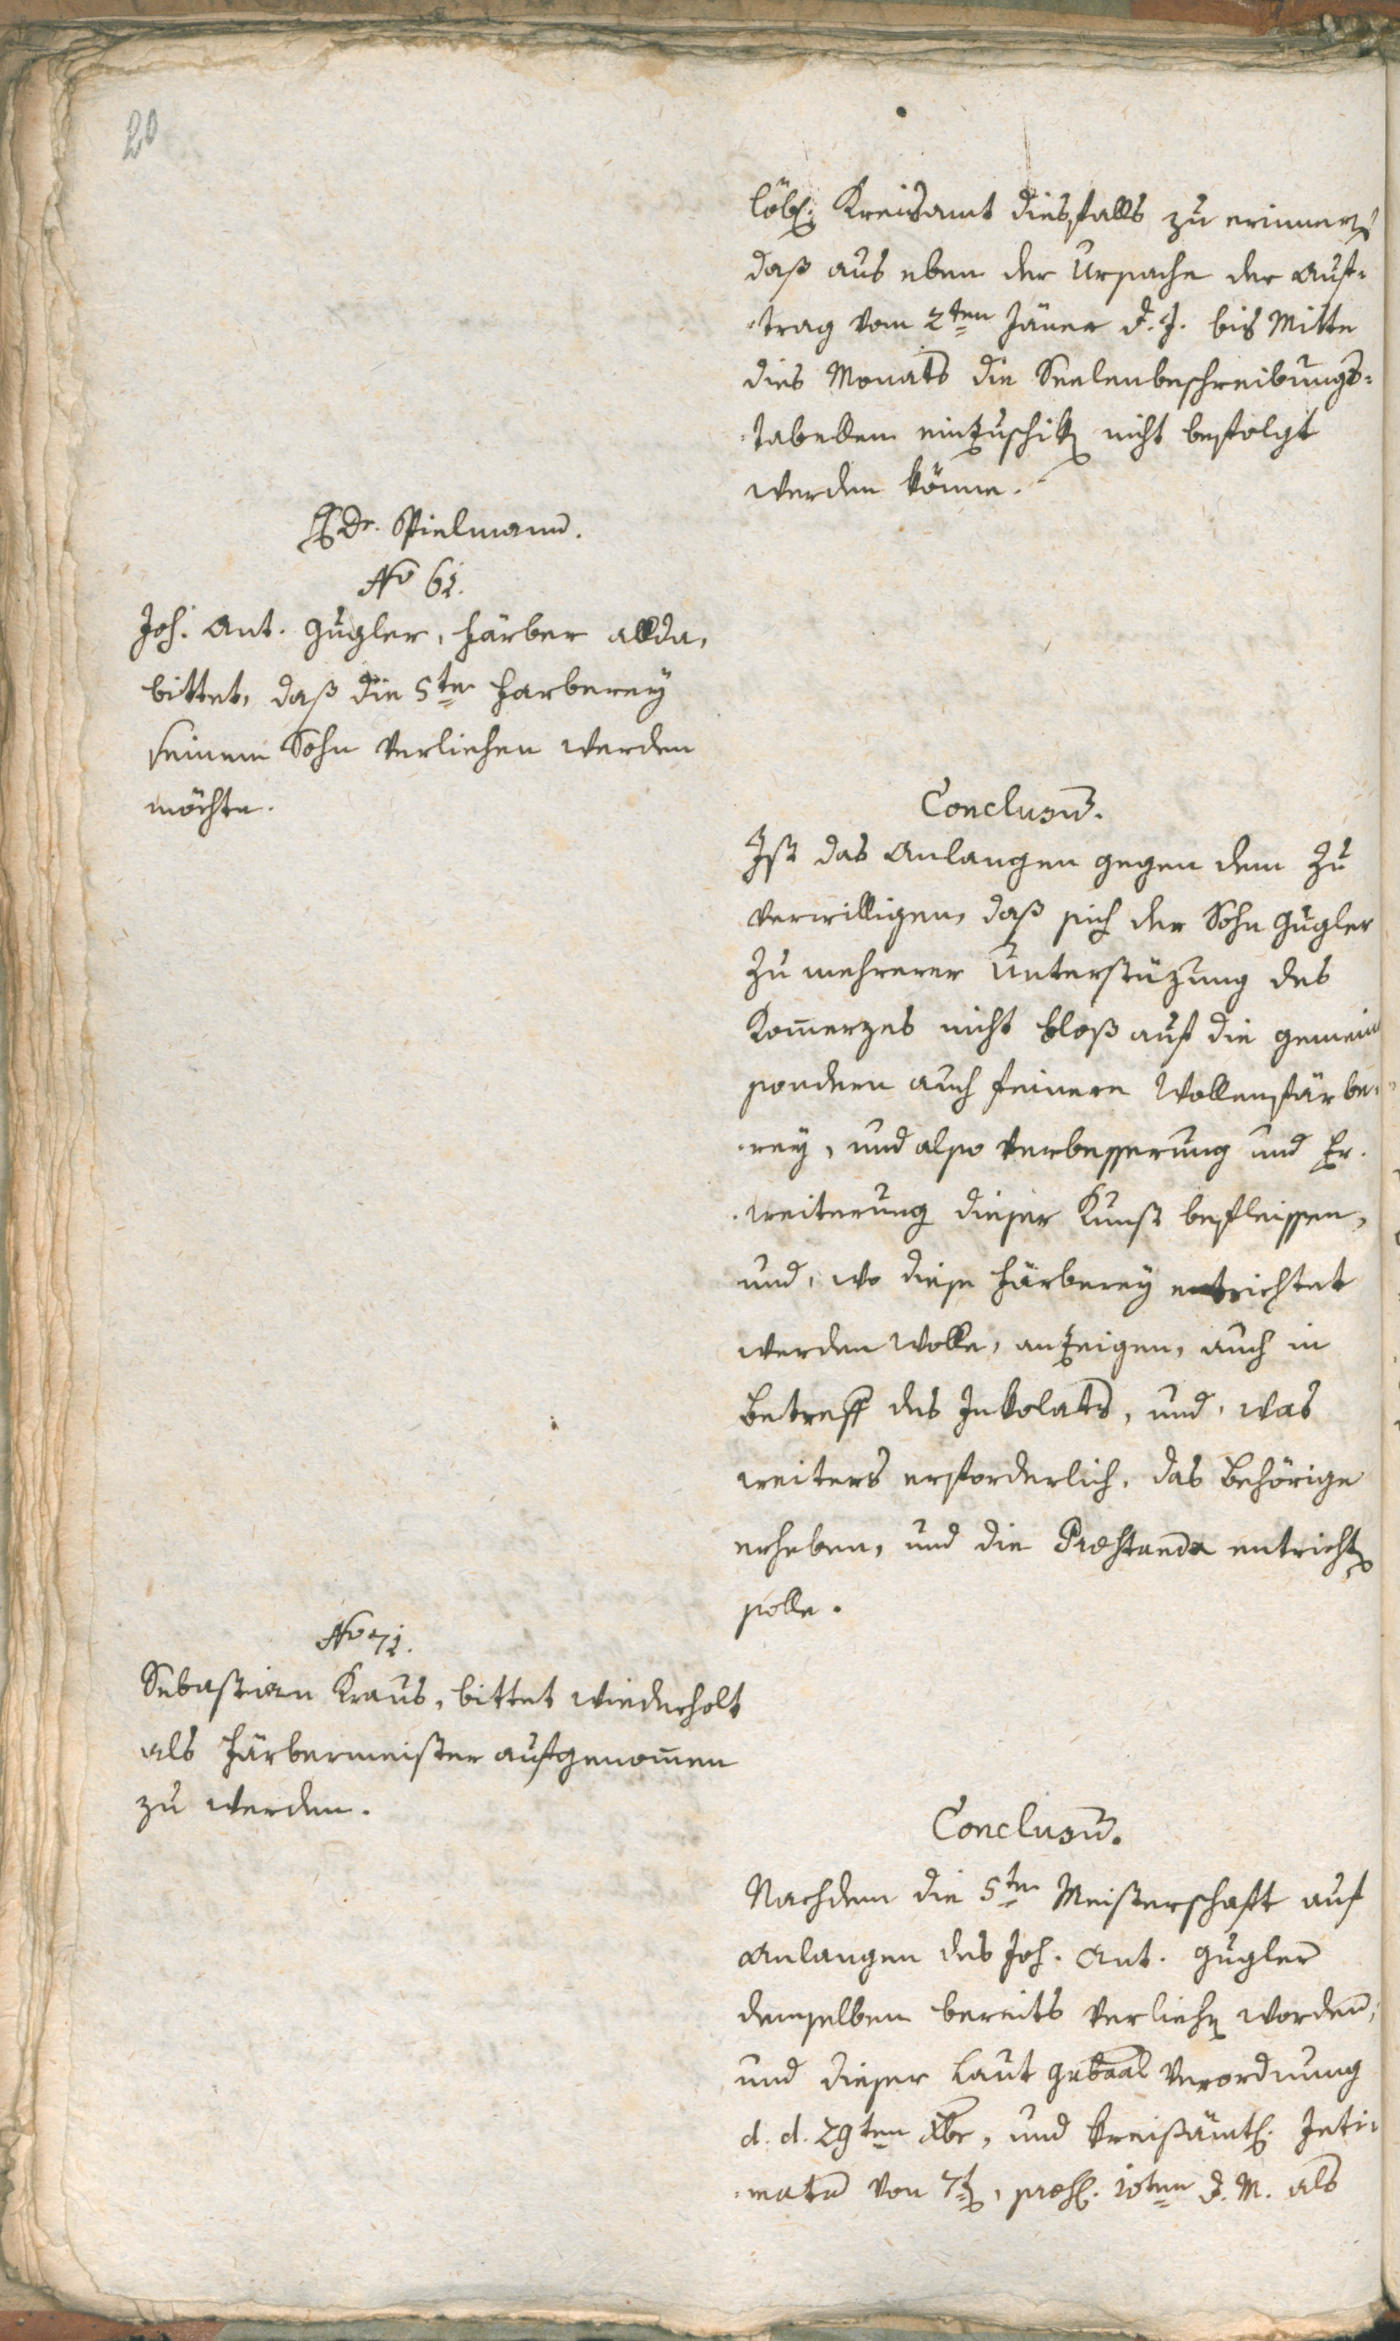 20
löbl. Kreisamt diesfalls zu erinnern
daß aus eben der Ursache der Auf-
-trag vom 2ten Jäner d. J. bis Mitte
dies Monats die Seelenbeschreibungs-
-tabellen einzuschiken nicht befolgt
werden könne.
H Dr. Spielmann.
No 61.
Joh. Ant. Gugler, Färber allda,
bittet, daß die 5te Farberey
seinem Sohn verliehen werden
möchte.
Conclusum.
Ist das Anlangen gegen dem zu
verwilligen, daß sich der Sohn Gugler
zu mehrerer Unterstüzung des
Kom̄erzes nicht bloß auf die gemeine
sondern auch feinere Wollenfärbe-
-rey, und also Verbesserung und Er-
-weiterung dieser Kunst befleissen,
und, wo diese Färberey entrichtet
werden wolle, anzeigen, auch in
Betreff des Inkolats, und, was
weiters erforderlich, das Behörige
erheben, und die Præstanda entrichten
solle.
No 71.
Sebastian Kraus, bittet wiederholt
als Färbermeister aufgenom̄en
zu werden.
Conclusum.
Nachdem die 5te Meisterschaft auf
Anlangen des Joh. Ant. Gugler
demselben bereits verliehen worden,
und dieser Laut Gubaal Verordnung
d. d. 29ten Xbr, und kreisämtl. Inti-
-maten von 7ten, præs. 10ten d. M. als